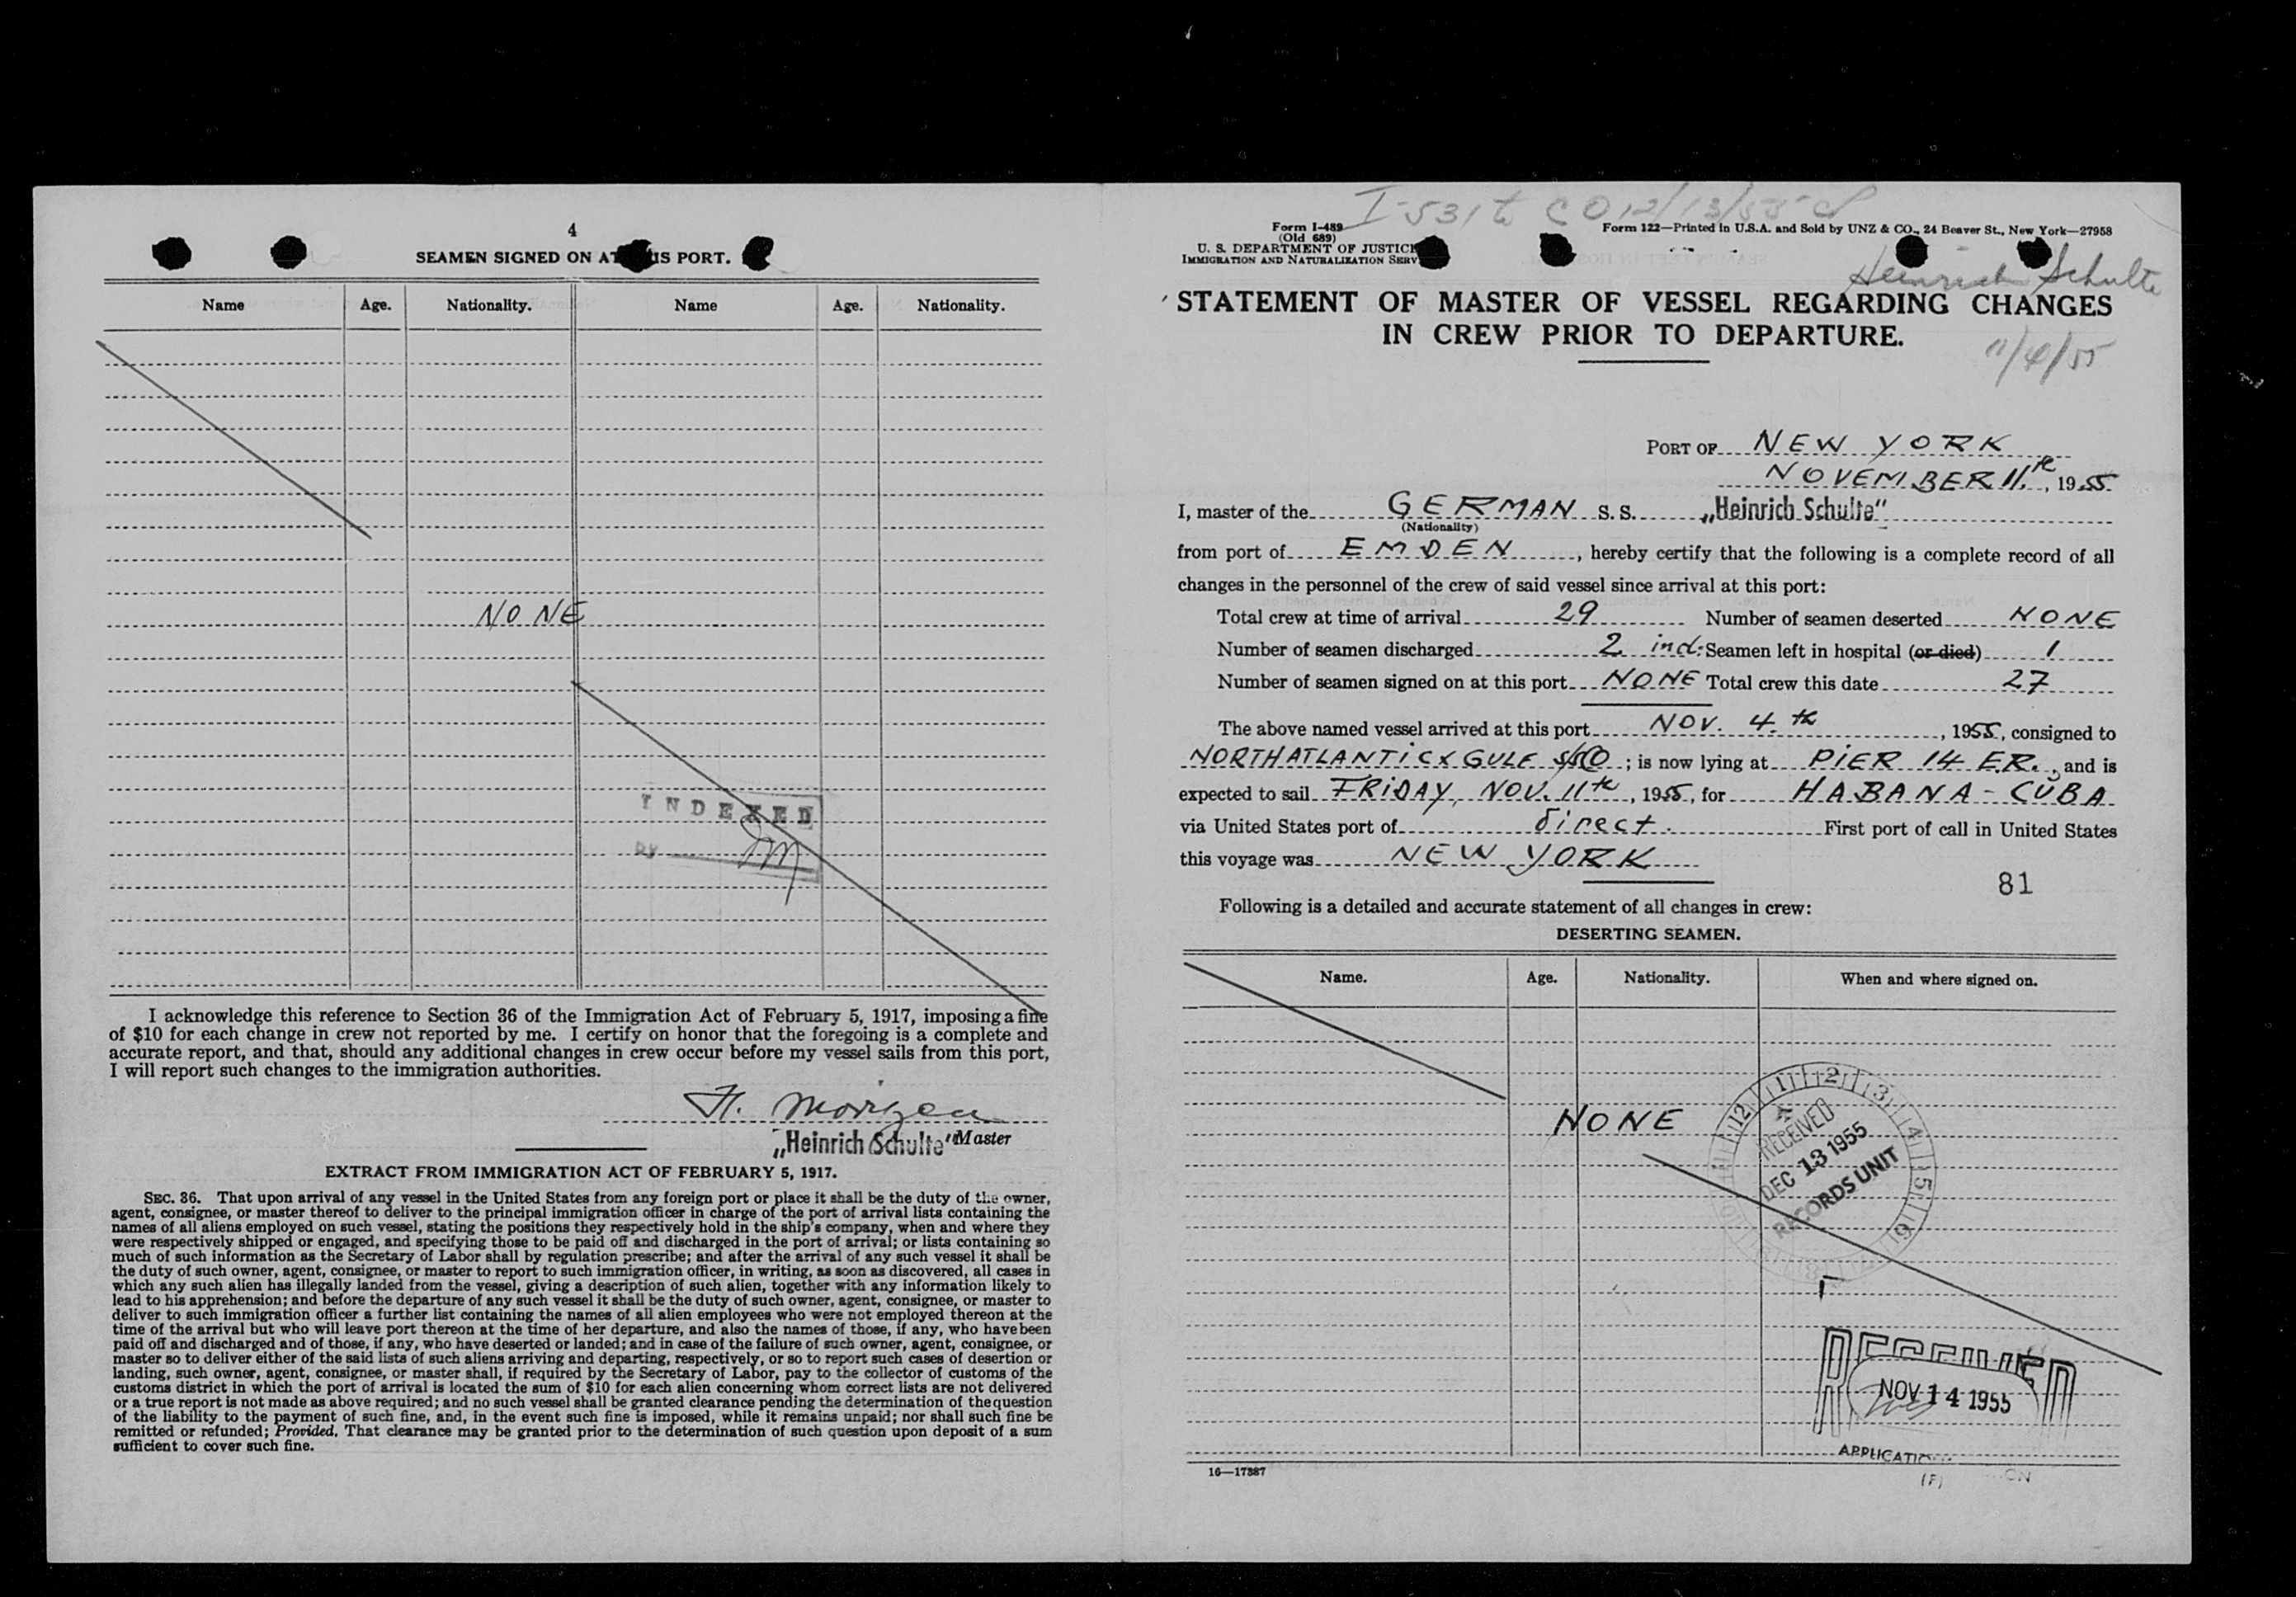 4
SEAMEN SIGNED ON AT IS PORT.
Name Age. Nationality. Name Age. Nationality.
NONE
INDEXED
By
I acknowledge this reference to Section 36 of the Immigration Act of February 5, 1917, imposing a fine
of $10 for each change in crew not reported by me. I certify on honor that the foregoing is a complete and
accurate report, and that, should any additional changes in crew occur before my vessel sails from this port,
I will report such changes to the immigration authorities.
„Heinrich Schulte" Master
EXTRACT FROM IMMIGRATION ACT OF FEBRUARY 5, 1917.
SEC. 36. That upon arrival of any vessel in the United States from any foreign port or place it shall be the duty of the owner,
agent, consignee, or master thereof to deliver to the principal immigration officer in charge of the port of arrival lists containing the
names of all aliens employed on such vessel, stating the positions they respectively hold in the ship's company, when and where they
were respectively shipped or engaged, and specifying those to be paid off and discharged in the port of arrival; or lists containing so
much of such information as the Secretary of Labor shall by regulation prescribe; and after the arrival of any such vessel it shall be
the duty of such owner, agent, consignee, or master to report to such immigration officer, in writing, as soon as discovered, all cases in
which any such alien has illegally landed from the vessel, giving a description of such alien, together with any information likely to
lead to his apprehension; and before the departure of any such vessel it shall be the duty of such owner, agent, consignee, or master to
deliver to such immigration officer a further list containing the names of all alien employees who were not employed thereon at the
time of the arrival but who will leave port thereon at the time of her departure, and also the names of those, if any, who have been
paid off and discharged and of those, if any, who have deserted or landed; and in case of the failure of such owner, agent, consignee, or
master so to deliver either of the said lists of such aliens arriving and departing, respectively, or so to report such cases of desertion or
landing, such owner, agent, consignee, or master shall, if required by the Secretary of Labor, pay to the collector of customs of the
customs district in which the port of arrival is located the sum of $10 for each alien concerning whom correct lists are not delivered
or a true report is not made as above required; and no such vessel shall be granted clearance pending the determination of the question
of the liability to the payment of such fine, and, in the event such fine is imposed, while it remains unpaid; nor shall such fine be
remitted or refunded; Provided, That clearance may be granted prior to the determination of such question upon deposit of a sum
sufficient to cover such fine.
I-531 to CO 12/13/55
Form I-489
(Old 689)
U. S. DEPARTMENT OF JUSTICE
IMMIGRATION AND NATURALIZATION SERV
Form 122—Printed in U.S.A. and Sold by UNZ & CO., 24 Beaver St., New York—27958
Heinrich Schulte
STATEMENT OF MASTER OF VESSEL REGARDING CHANGES
IN CREW PRIOR TO DEPARTURE.
11/4/55
PORT OF NEW YORK
NOVEMBER 11.th, 1955
I, master of the GERMAN S. S. „Heinrich Schulte"
(Nationality)
from port of EMDEN, hereby certify that the following is a complete record of all
changes in the personnel of the crew of said vessel since arrival at this port:
Total crew at time of arrival 29 Number of seamen deserted NONE
Number of seamen discharged 2 incl: Seamen left in hospital (or died) 1
Number of seamen signed on at this port NONE Total crew this date 27
The above named vessel arrived at this port NOV. 4.th, 1955, consigned to
NORTH ATLANTIC & GULF S/S CO; is now lying at PIER 14 E.R., and is
expected to sail FRIDAY, NOV. 11th, 1955, for HABANA - CUBA
via United States port of direct. First port of call in United States
this voyage was NEW YORK
81
Following is a detailed and accurate statement of all changes in crew:
DESERTING SEAMEN.
Name. Age. Nationality. When and where signed on.
NONE
12 1 2 3 4 5 6
RECEIVED
DEC 13 1955
RECORDS UNIT
RECEIVED
NOV 14 1955
16—17387